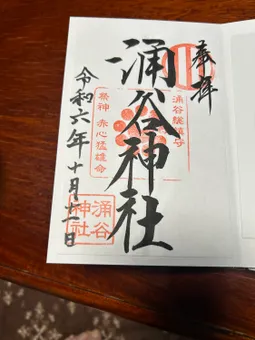 奉拝
涌谷総鎮守
涌谷神社
祭神 赤心猛雄命
涌谷神社
令和六年十月十一日